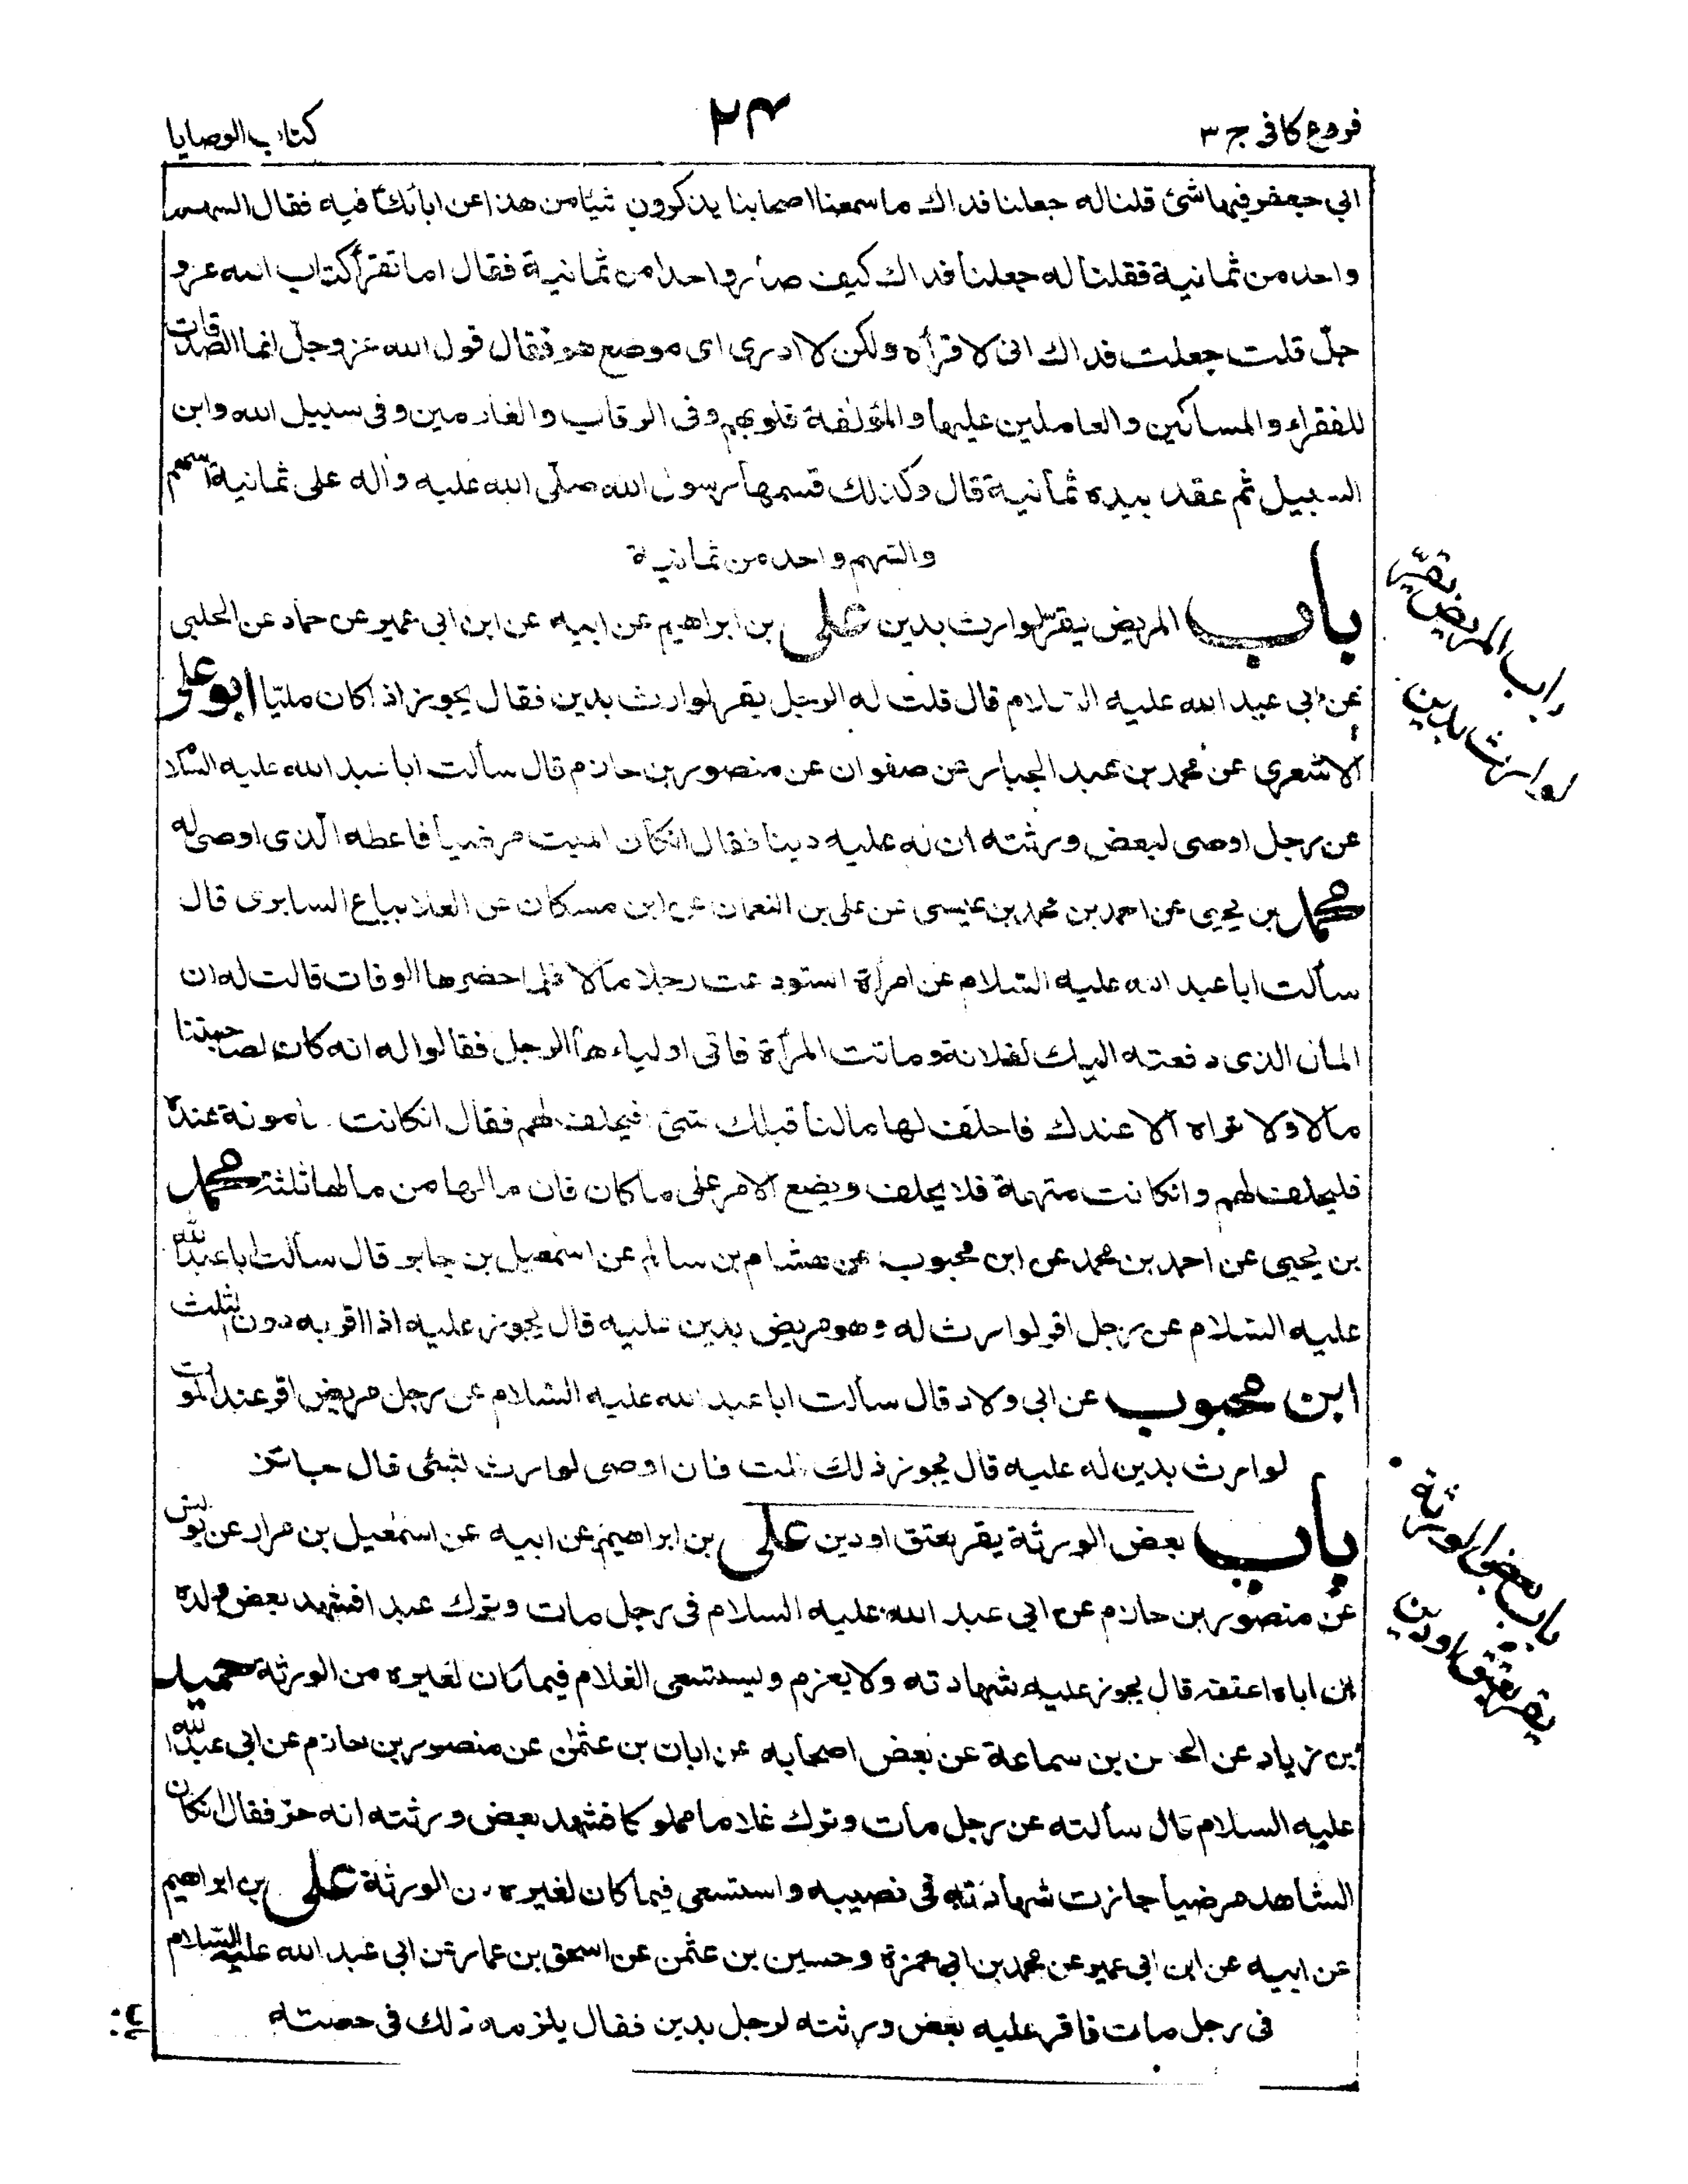 فروع كافى ج ٣
٢٤
كتاب الوصايا
ابي جعفر فيها شئ قلنا له جعلنا فداك ما سمعنا اصحابنا يذكرون شيئا من هذا عن ابائك فيه فقال السهم
واحد من ثمانية فقلنا له جعلنا فداك كيف صار واحدا من ثمانية فقال اما تقرأ كتاب الله عز و
جلّ قلت جعلت فداك انى لاقرأه ولكن لا ادرى اى موضع هو فقال قول الله عز وجلّ انما الصدقات
للفقراء والمساكين والعاملين عليها والمؤلفة قلوبهم وفى الرقاب والغارمين وفى سبيل الله وابن
السبيل ثم عقد بيده ثمانية قال وكذلك قسمها رسول الله صلّى الله عليه واله على ثمانية اسهم
والسّهم واحد من ثمانية
باب المريض يقرّ لوارث بدين على بن ابراهيم عن ابيه عن ابن ابى عمير عن حماد عن الحلبى
عن ابى عبد الله عليه السلام قال قلت له الرجل يقر لوارث بدين فقال يجوز اذا كان مليّا ابو على
الاشعرى عن محمد بن عبد الجبار عن صفوان عن منصور بن حازم قال سألت ابا عبد الله عليه السّلام
عن رجل اوصى لبعض ورثته ان له عليه دينا فقال انكان الميت مرضيا فاعطه الّذى اوصى له
محمد بن يحيى عن احمد بن محمد بن عيسى عن على بن النعمان عن ابن مسكان عن العلا بياع السابرى قال
سألت ابا عبد الله عليه السّلام عن امرأة استودعت رجلا مالا فلما حضرها الوفات قالت له ان
المال الذى دفعته اليك لفلانة وماتت المرأة فاتى اولياءها الرجل فقالوا له انه كان لصاحبتنا
مالا ولا نراه الا عندك فاحلف لها ما لنا قبلك شئ فيحلف لهم فقال انكانت مأمونة عنده
فليحلف لهم وانكانت متهمة فلا يحلف ويضع الامر على ما كان فان مالها من مالها ثلثة محمد
بن يحيى عن احمد بن محمد عن ابن محبوب عن هشام بن سالم عن اسمعيل بن جابر قال سألت ابا عبد الله
عليه السّلام عن رجل اقر لوارث له وهو مريض بدين عليه قال يجوز عليه اذا اقر به دون الثلث
ابن محبوب عن ابى ولاد قال سألت ابا عبد الله عليه السّلام عن رجل مريض اقر عند الموت
لوارث بدين له عليه قال يجوز ذلك قلت فان اوصى لوارث بشئ قال جائز
باب بعض الورثة يقر بعتق او دين على بن ابراهيم عن ابيه عن اسمعيل بن مرار عن يونس
عن منصور بن حازم عن ابي عبد الله عليه السلام فى رجل مات وترك عبدا فشهد بعض ولده
ان اباه اعتقه قال يجوز عليه شهادته ولا يغرم ويستسعى الغلام فيما كان لغيره من الورثة حميد
بن زياد عن الحسن بن سماعة عن بعض اصحابه عن ابان بن عثمن عن منصور بن حازم عن ابى عبد الله
عليه السلام قال سألته عن رجل مات وترك غلاما مملوكا فشهد بعض ورثته انه حرّ فقال انكان
الشاهد مرضيا جازت شهادته فى نصيبه واستسعى فيما كان لغيره من الورثة على بن ابراهيم
عن ابيه عن ابن ابى عمير عن محمد بن ابى حمزة وحسين بن عثمن عن اسحق بن عمار عن ابى عبد الله عليه السّلام
فى رجل مات فاقر عليه بعض ورثته لرجل بدين فقال يلزمه ذلك فى حصته
باب المريض يقرّ
لوارث بدين
باب بعض الورثة
يقر بعتق او دين